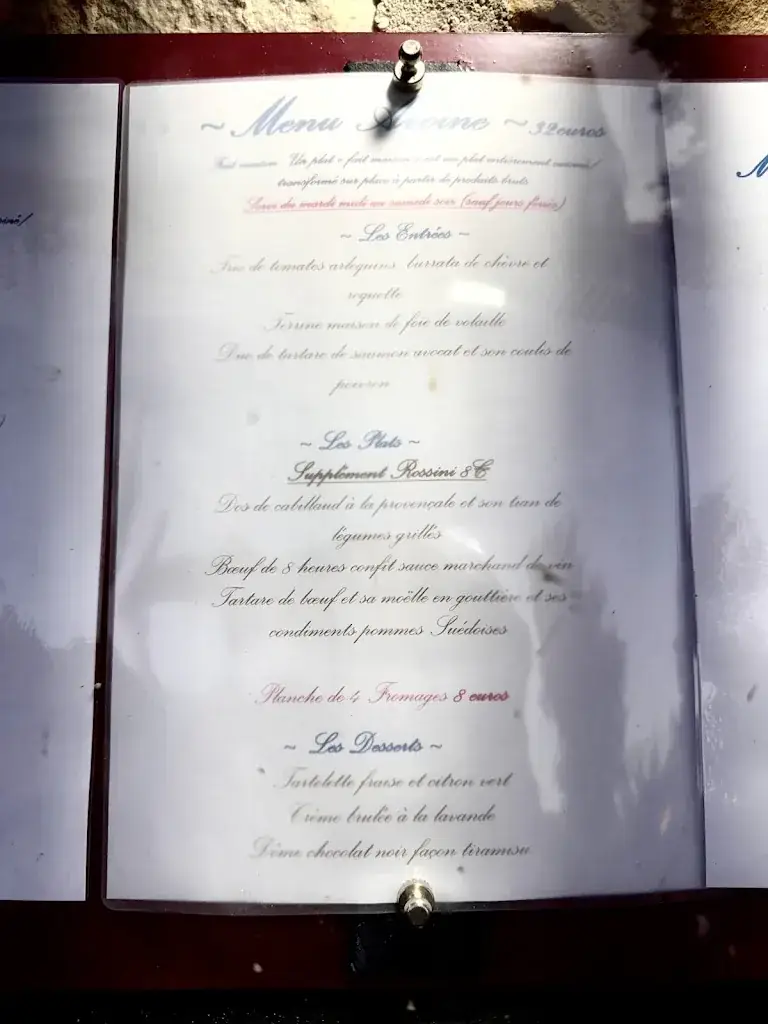 ~ Menu ~ 32 euros
Fait maison Un plat « fait maison » est un plat entièrement cuisiné/
transformé sur place à partir de produits bruts
Servi du mardi midi au samedi soir (sauf jours fériés)
~ Les Entrées ~
Trio de tomates arlequins burrata de chèvre et
roquette
Terrine maison de foie de volaille
Duo de tartare de saumon avocat et son coulis de
poivron
~ Les Plats ~
Supplément Rossini 8€
Dos de cabillaud à la provençale et son tian de
légumes grillés
Bœuf de 8 heures confit sauce marchand de vin
Tartare de bœuf et sa moëlle en gouttière et ses
condiments pommes Suédoises
Planche de 4 Fromages 8 euros
~ Les Desserts ~
Tartelette fraise et citron vert
Crème brulée à la lavande
Dôme chocolat noir façon tiramisu